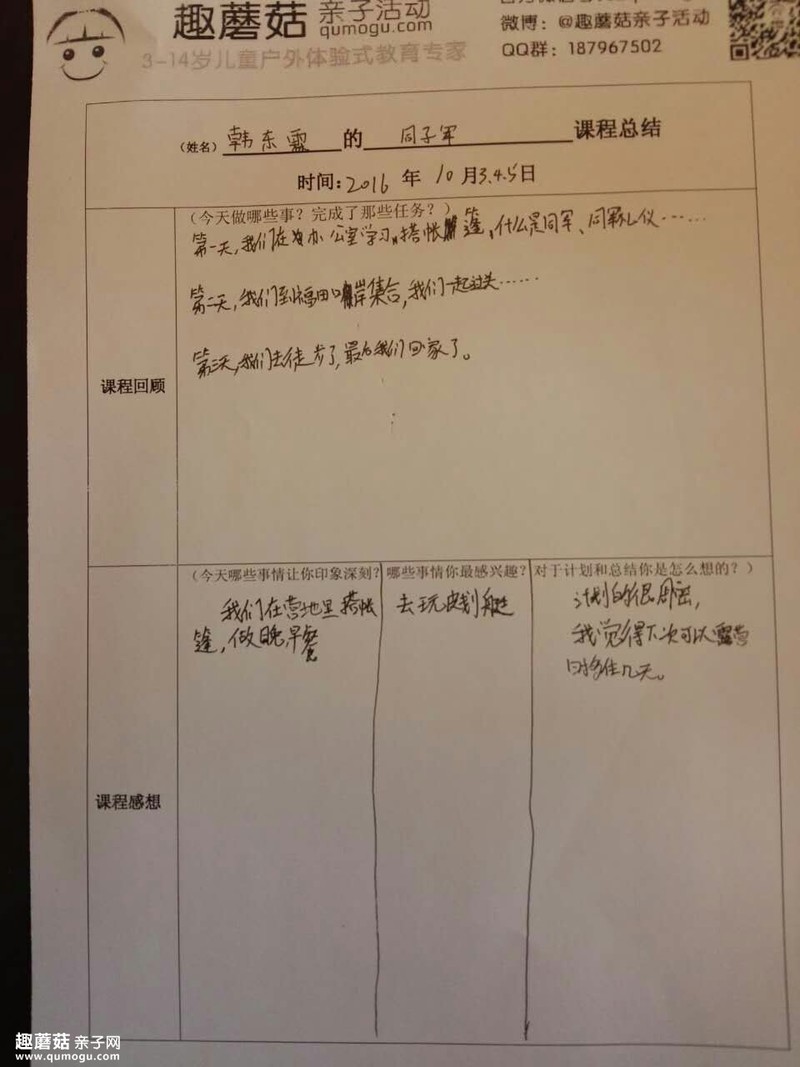 趣蘑菇 亲子活动
qumogu.com
3-14岁儿童户外体验式教育专家
微博：@趣蘑菇亲子活动
QQ群：187967502
（姓名）韩东霖 的 同子军 课程总结
时间：2016 年 10 月3.4.5日
课程回顾
（今天做哪些事？完成了那些任务？）
第一天，我们在办公室学习，搭帐篷，什么是同军、同军礼仪……
第二天，我们到福田口岸集合，我们一起过关……
第三天，我们去徒步了，最后我们回家了。
课程感想
（今天哪些事情让你印象深刻？
我们在营地里搭帐
篷，做晚早餐
哪些事情你最感兴趣？
去玩皮划艇
对于计划和总结你是怎么想的？）
计划的很周密，
我觉得下次可以露营
时多住几天。
趣蘑菇 亲子网
www.qumogu.com